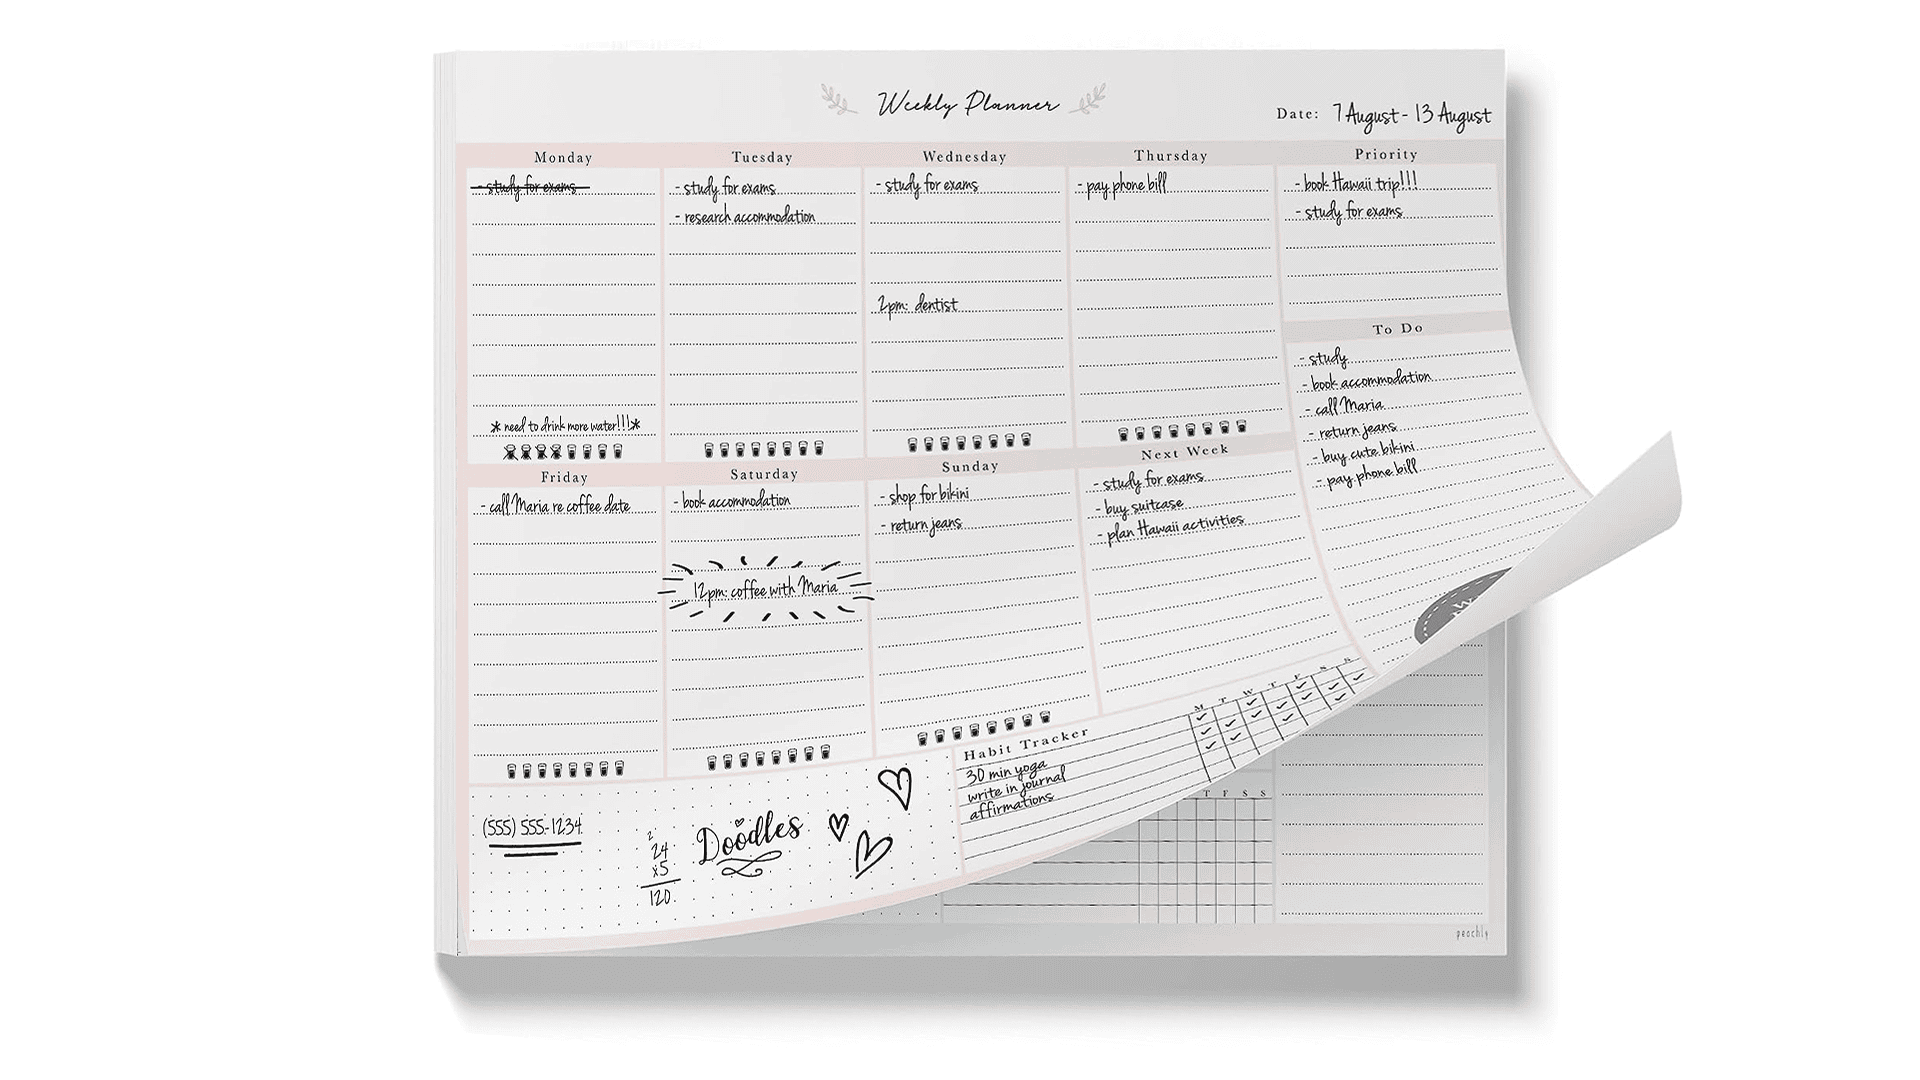 Weekly Planner
Date: 7 August - 13 August
Monday
- study for exams
*need to drink more water!!!*
Tuesday
- study for exams
- research accommodation
Wednesday
- study for exams
2pm: dentist
Thursday
- pay phone bill
Priority
- book Hawaii trip!!!
- study for exams
To Do
- study
- book accommodation
- call Maria
- return jeans
- buy cute bikini
- pay phone bill
Friday
- call Maria re coffee date
Saturday
- book accommodation
12pm: coffee with Maria
Sunday
- shop for bikini
- return jeans
Next Week
- study for exams
- buy suitcase
- plan Hawaii activities
Habit Tracker
M T W T F S S
30 min yoga
write in journal
affirmations
(555) 555-1234
2
24
x5
120
Doodles
T F S S
peachly